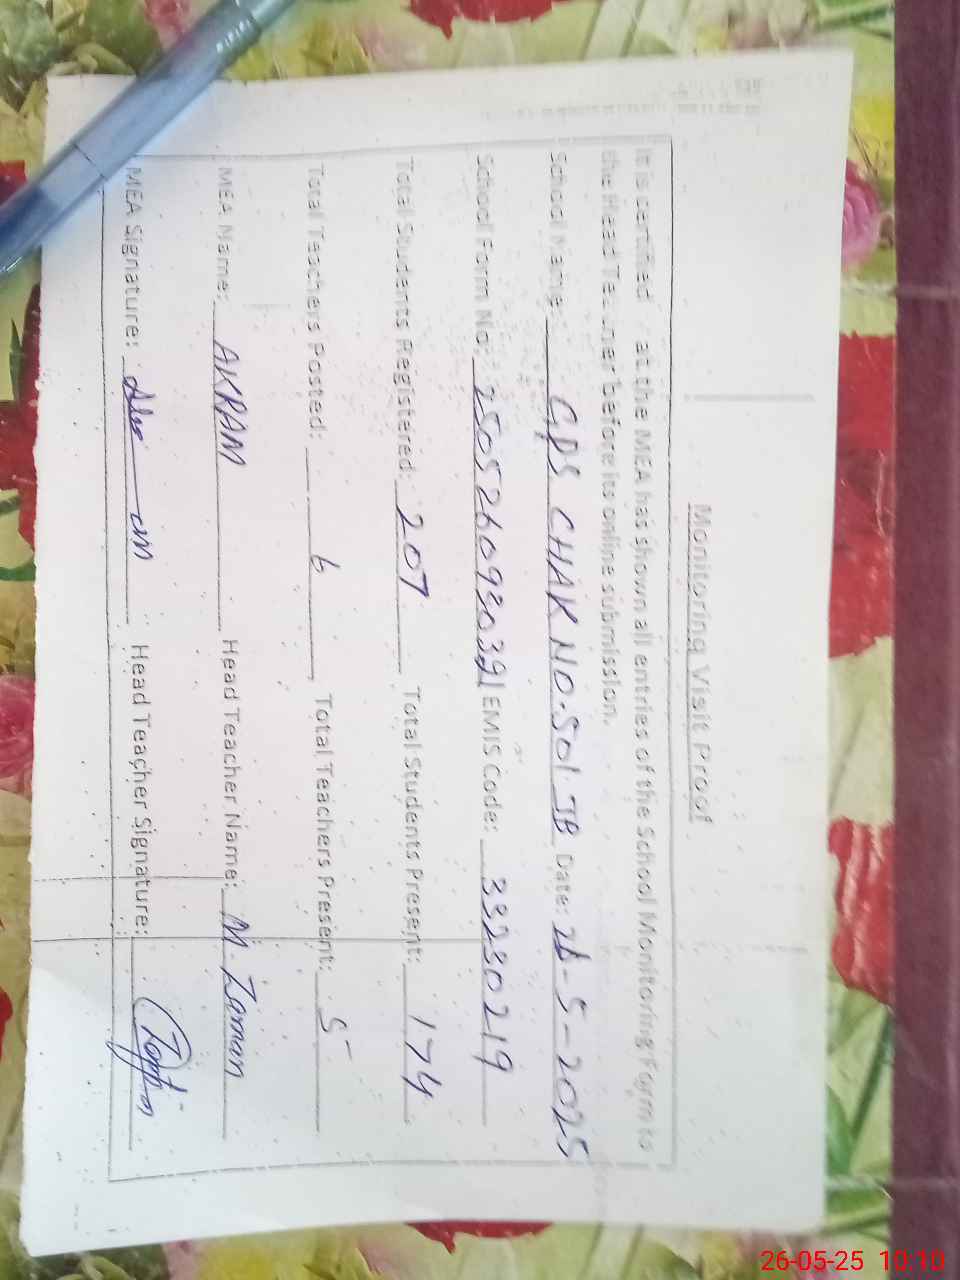 Monitoring Visit Proof
It is certified that the MEA has shown all entries of the School Monitoring Form to
the Head Teacher before its online submission.
School Name: GPS CHAK NO. 501 JB Date: 26-5-2025
School Form No: EMIS Code: 33230219
Total Students Registered: 207 Total Students Present: 174
Total Teachers Posted: 6 Total Teachers Present: 5
MEA Name: AKRAM Head Teacher Name: M. Zaman
MEA Signature: Head Teacher Signature:
26-05-25 10:10